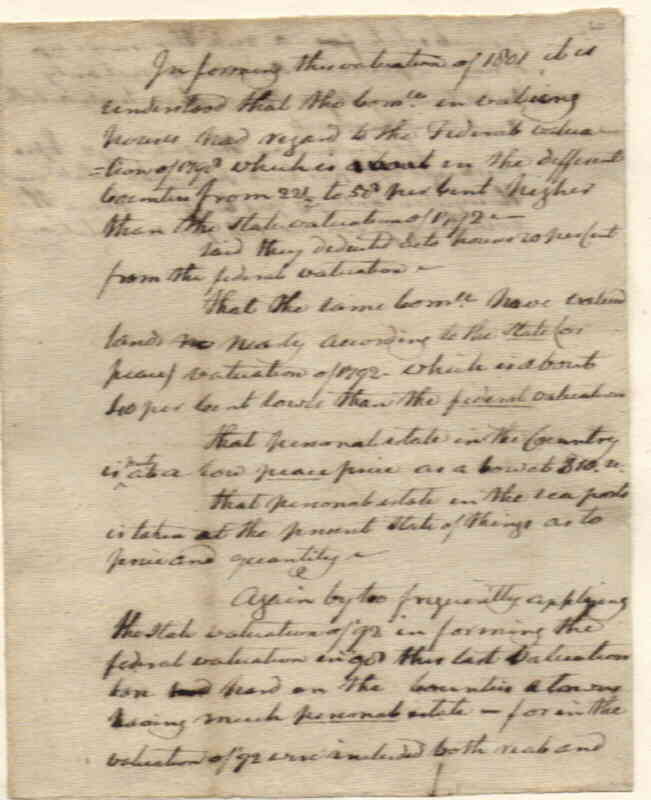 In forming this valuation of 1801 it is
understood that the Comtee in valuing
houses had regard to the Federal valua-
=tion of 1798 which is in the different
Counties from 22½ to 50 per Cent higher
than the State valuation of 1792 –
and they deducted as to houses 20 per Cent
from the federal valuation –
That the same Comtee have valued
lands nearly according to the State (or
peace) valuation of 1792 – which is about
per Cent lower than the federal valuation
that personal estate in the Country
is put at a low peace price as a Cow at $10.
that personal estate in the sea ports
is taken at the present State of things as to
price and quantity –
Again by too frequently applying
the State valuation of 92 in forming the
federal valuation in 98 this last Valuation
bore hard on the Counties & towns
having much personal estate – for in the
valuation of 92 were included both real and